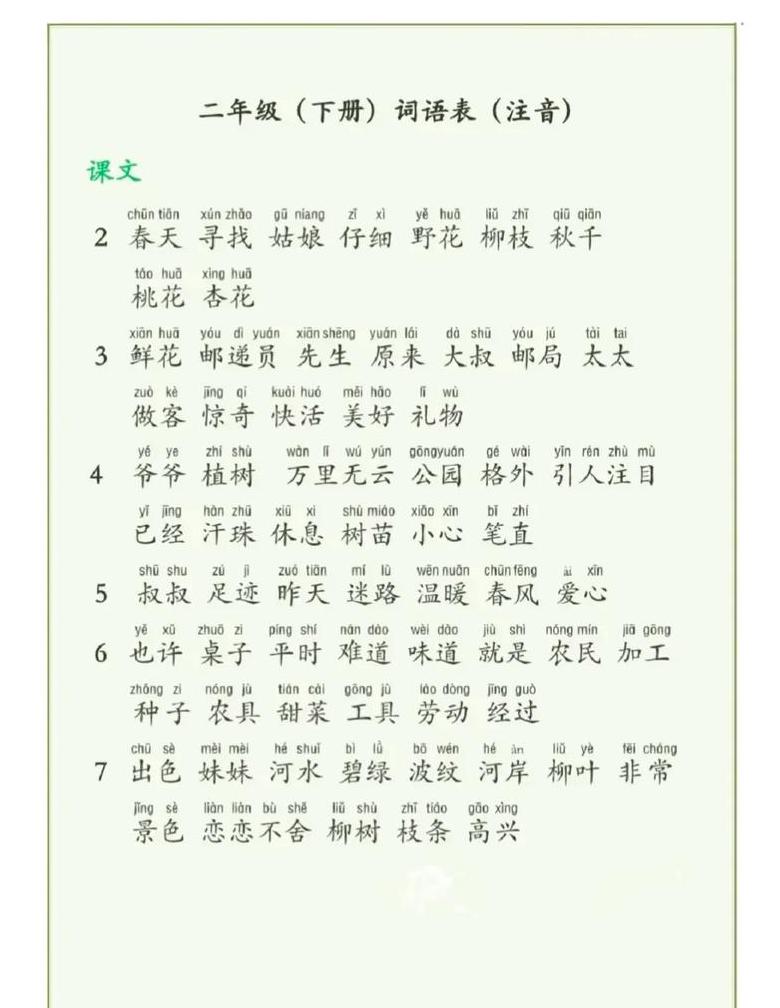 二年级（下册）词语表（注音）
课文
chūn tiān xún zhǎo gū niang zǐ xì yě huā liǔ zhī qiū qiān
2 春天 寻找 姑娘 仔细 野花 柳枝 秋千
táo huā xìng huā
桃花 杏花
xiān huā yóu dì yuán xiān shēng yuán lái dà shū yóu jú tài tai
3 鲜花 邮递员 先生 原来 大叔 邮局 太太
zuò kè jīng qí kuài huó měi hǎo lǐ wù
做客 惊奇 快活 美好 礼物
yé ye zhí shù wàn lǐ wú yún gōngyuán gé wài yǐn rén zhù mù
4 爷爷 植树 万里无云 公园 格外 引人注目
yǐ jīng hàn zhū xiū xi shù miáo xiǎo xīn bǐ zhí
已经 汗珠 休息 树苗 小心 笔直
shū shu zú jì zuó tiān mí lù wēn nuǎn chūn fēng ài xīn
5 叔叔 足迹 昨天 迷路 温暖 春风 爱心
yě xǔ zhuō zi píng shí nán dào wèi dào jiù shì nóng mín jiā gōng
6 也许 桌子 平时 难道 味道 就是 农民 加工
zhǒng zi nóng jù tián cài gōng jù láo dòng jīng guò
种子 农具 甜菜 工具 劳动 经过
chū sè mèi mèi hé shuǐ bì lǜ bō wén hé àn liǔ yè fēi cháng
7 出色 妹妹 河水 碧绿 波纹 河岸 柳叶 非常
jǐng sè liàn liàn bù shě liǔ shù zhī tiáo gāo xìng
景色 恋恋不舍 柳树 枝条 高兴